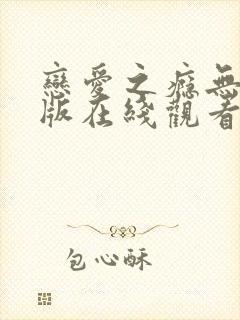 戀愛之癮無
版在綫觀看
包心酥